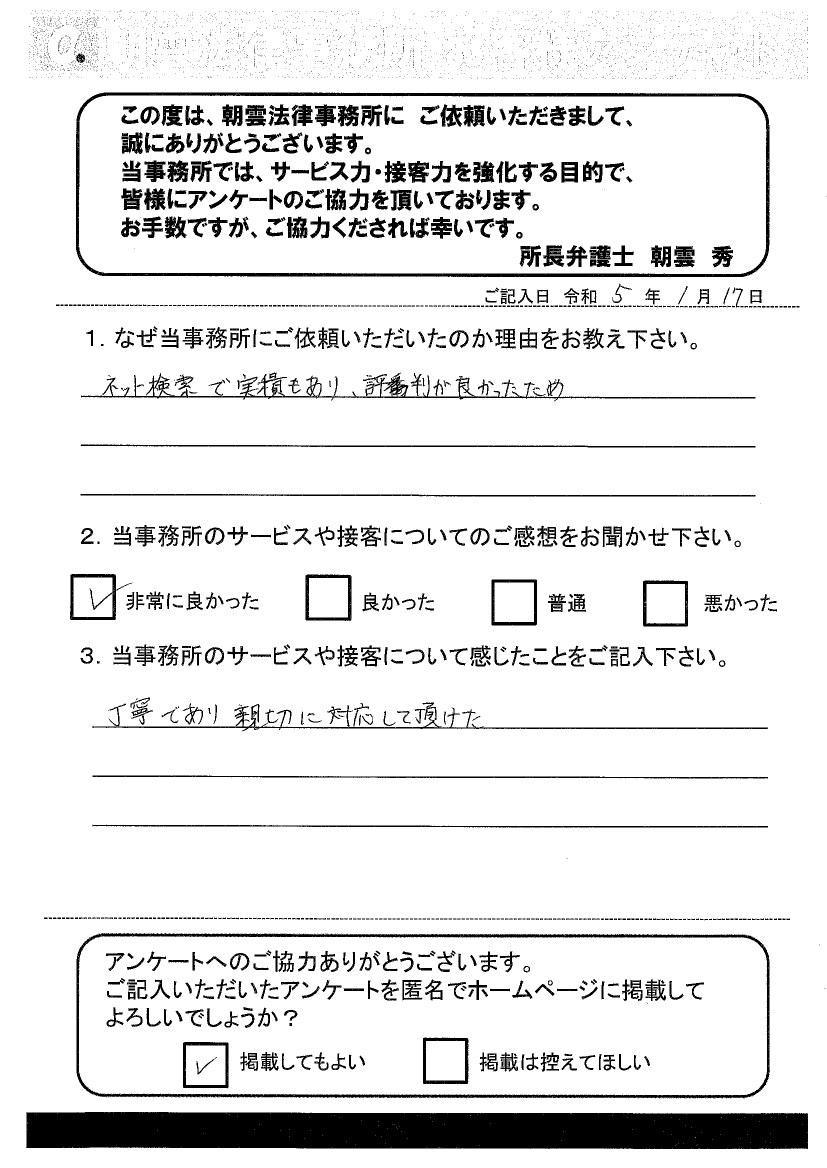 この度は、朝雲法律事務所に ご依頼いただきまして、
誠にありがとうございます。
当事務所では、サービス力・接客力を強化する目的で、
皆様にアンケートのご協力を頂いております。
お手数ですが、ご協力くだされば幸いです。
所長弁護士 朝雲 秀
ご記入日 令和 5 年 1 月 17 日
1. なぜ当事務所にご依頼いただいたのか理由をお教え下さい。
ネット検索で実積もあり、評判が良かったため
2. 当事務所のサービスや接客についてのご感想をお聞かせ下さい。
非常に良かった 良かった 普通 悪かった
3. 当事務所のサービスや接客について感じたことをご記入下さい。
丁寧であり親切に対応して頂けた
アンケートへのご協力ありがとうございます。
ご記入いただいたアンケートを匿名でホームページに掲載して
よろしいでしょうか？
掲載してもよい 掲載は控えてほしい